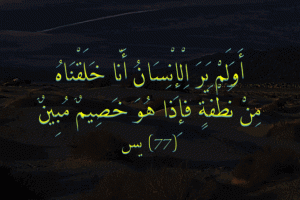 أَوَلَمْ يَرَ الْإِنْسَانُ أَنَّا خَلَقْنَاهُ
مِنْ نُطْفَةٍ فَإِذَا هُوَ خَصِيمٌ مُبِينٌ
(77) يس